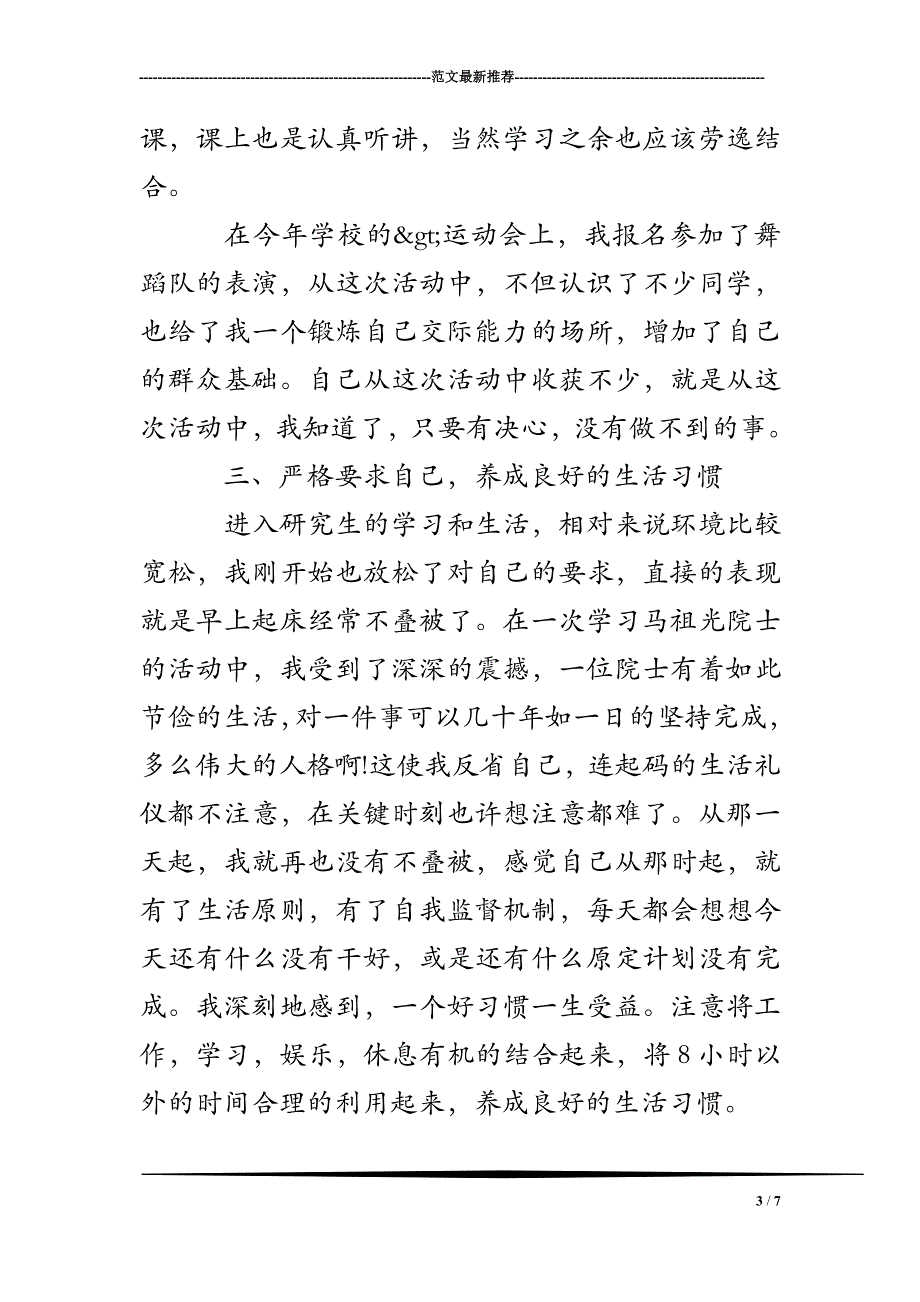 ---------------------------------------------------------------范文最新推荐------------------------------------------------------
课，课上也是认真听讲，当然学习之余也应该劳逸结
合。
在今年学校的&gt;运动会上，我报名参加了舞
蹈队的表演，从这次活动中，不但认识了不少同学，
也给了我一个锻炼自己交际能力的场所，增加了自己
的群众基础。自己从这次活动中收获不少，就是从这
次活动中，我知道了，只要有决心，没有做不到的事。
三、严格要求自己，养成良好的生活习惯
进入研究生的学习和生活，相对来说环境比较
宽松，我刚开始也放松了对自己的要求，直接的表现
就是早上起床经常不叠被了。在一次学习马祖光院士
的活动中，我受到了深深的震撼，一位院士有着如此
节俭的生活，对一件事可以几十年如一日的坚持完成，
多么伟大的人格啊!这使我反省自己，连起码的生活礼
仪都不注意，在关键时刻也许想注意都难了。从那一
天起，我就再也没有不叠被，感觉自己从那时起，就
有了生活原则，有了自我监督机制，每天都会想想今
天还有什么没有干好，或是还有什么原定计划没有完
成。我深刻地感到，一个好习惯一生受益。注意将工
作，学习，娱乐，休息有机的结合起来，将 8 小时以
外的时间合理的利用起来，养成良好的生活习惯。
3 / 7